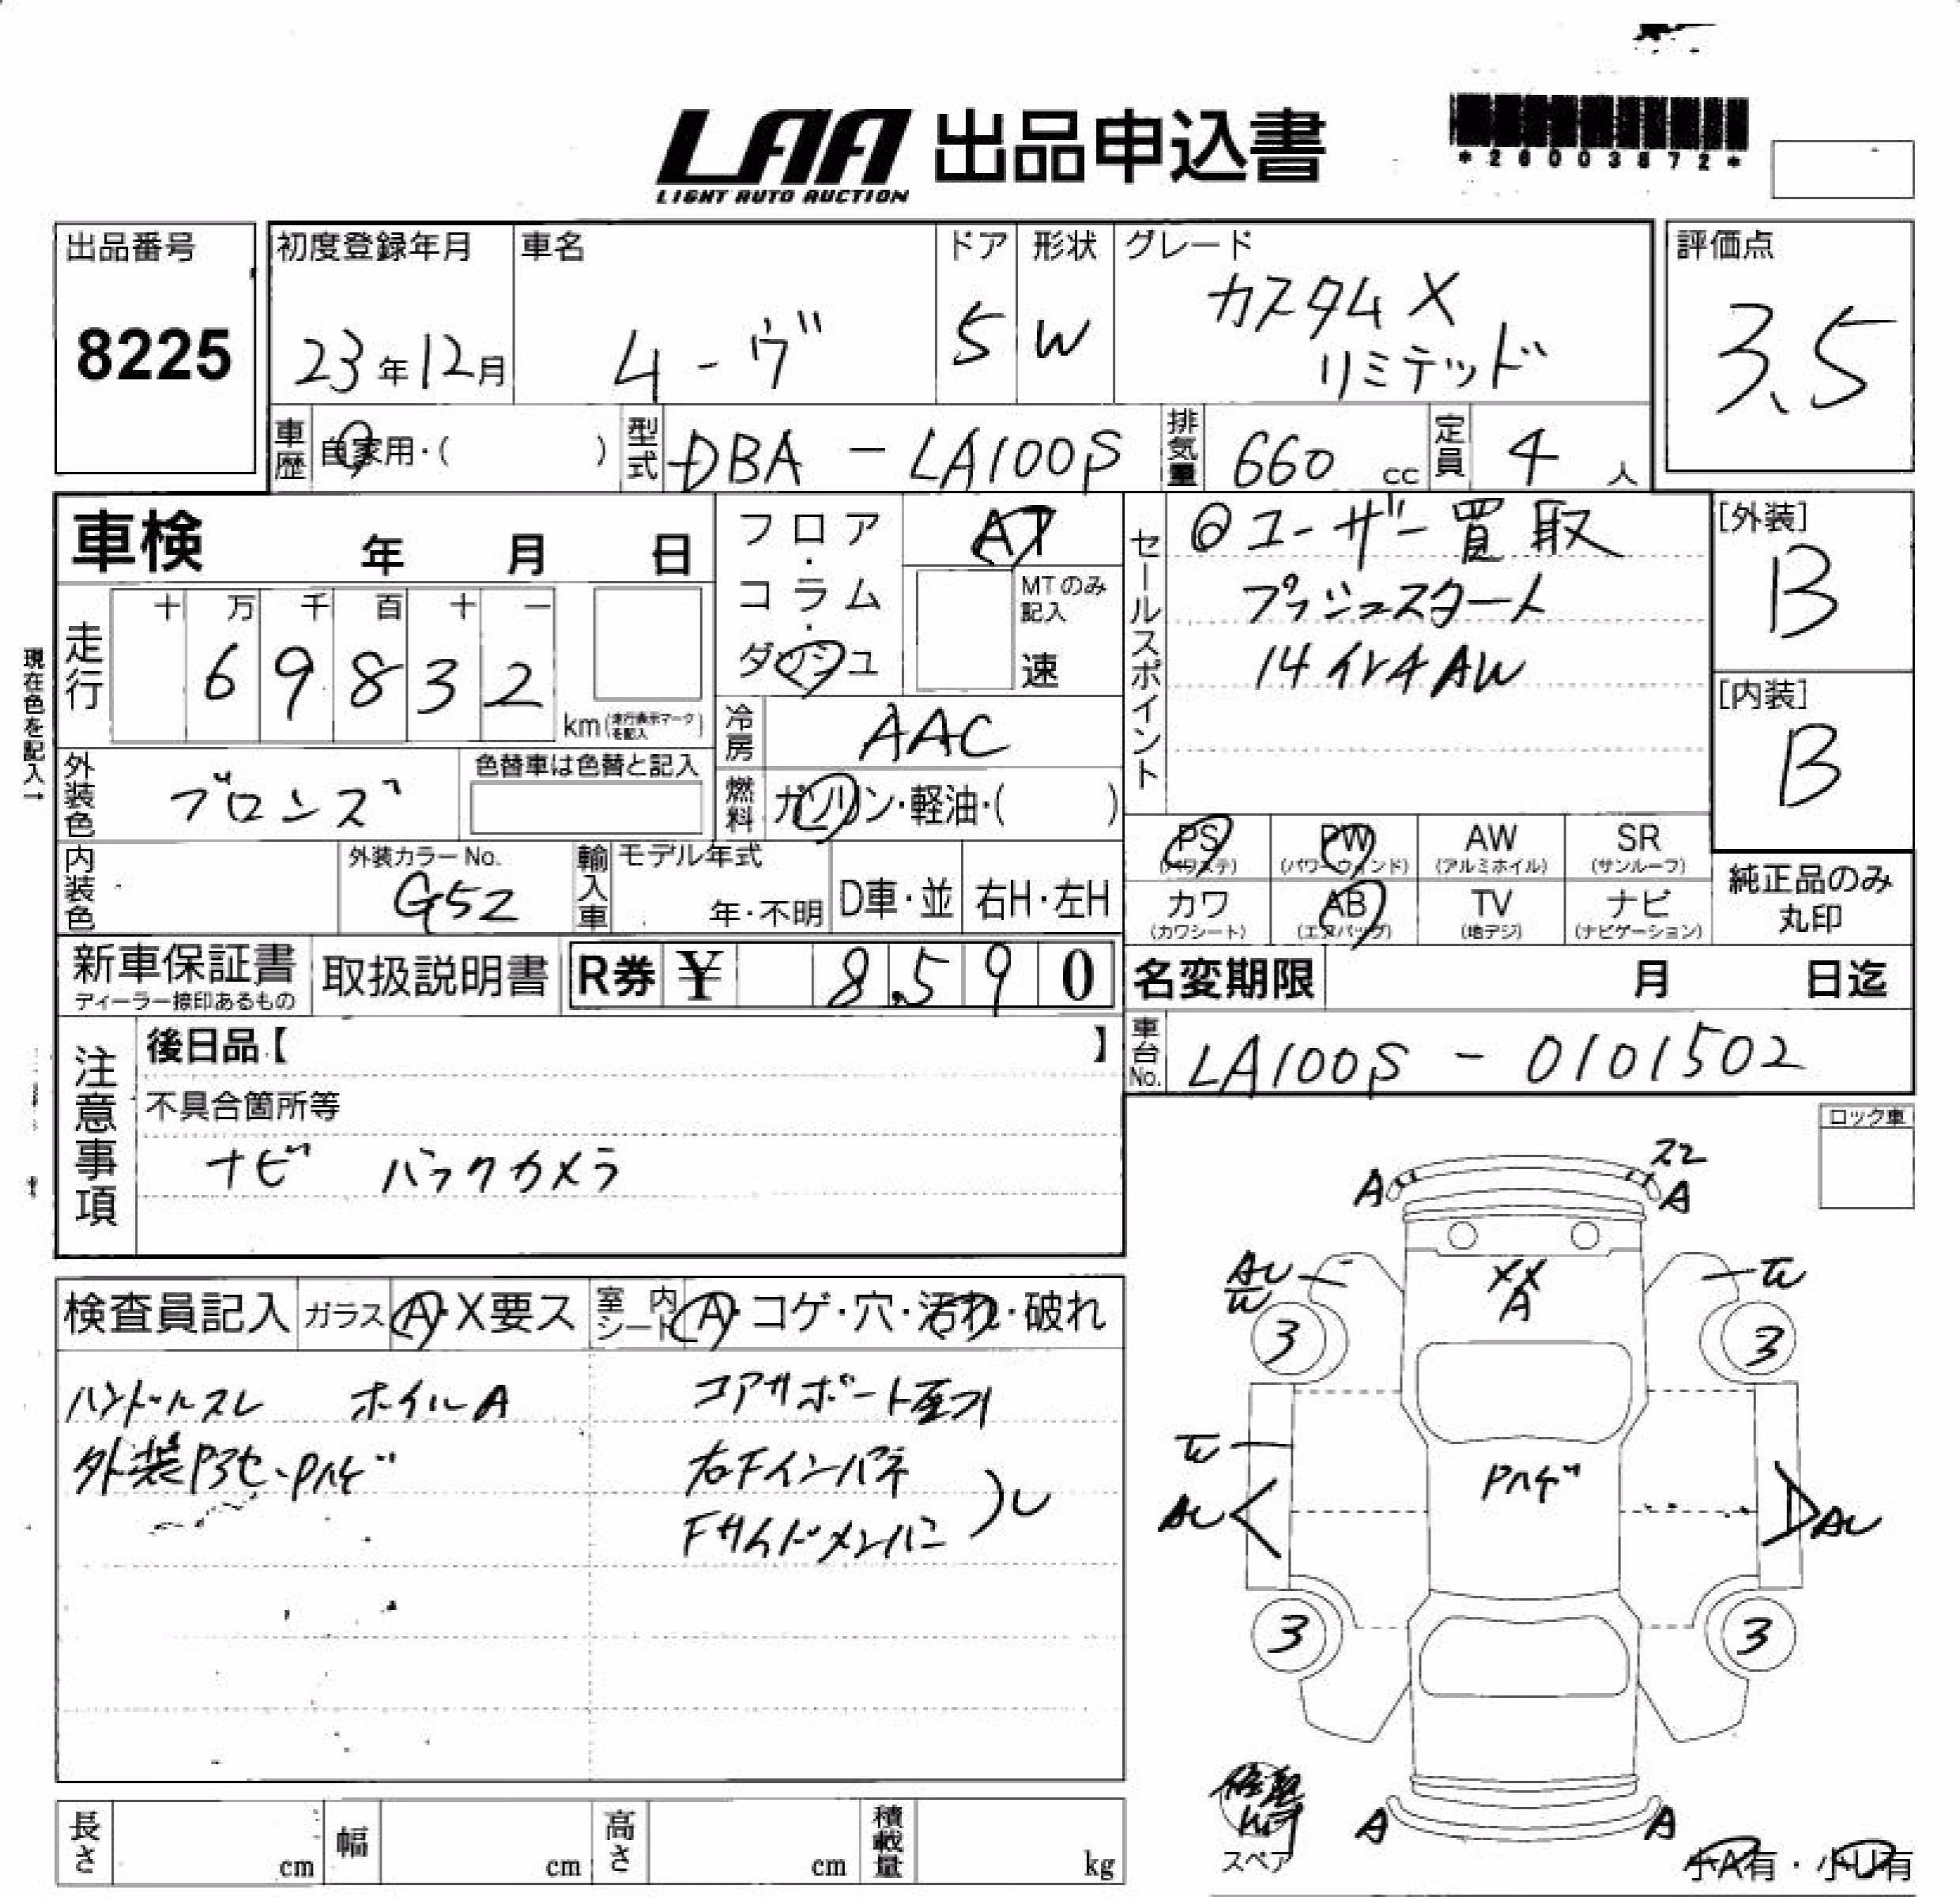 LAA 出品申込書
LIGHT AUTO AUCTION
*26003872*
出品番号
8225
初度登録年月
23年12月
車名
ムーヴ
ドア
5
形状
W
グレード
カスタムX
リミテッド
評価点
3.5
車歴
自家用・( )
型式
DBA - LA100S
排気量
660 cc
定員
4 人
車検 年 月 日
現在色を記入→
走行
十 万 千 百 十 一
6 9 8 3 2
km(走行表示マークを記入)
外装色
ブロンズ
色替車は色替と記入
内装色
外装カラーNo.
G52
輸入車
モデル年式
年・不明
D車・並
右H・左H
フロア・コラム・ダッシュ
AT
MTのみ記入
速
冷房
AAC
燃料
ガソリン・軽油・( )
セールスポイント
◎ユーザー買取
プッシュスタート
14インチAW
[外装]
B
[内装]
B
PS
(パワステ)
PW
(パワーウィンド)
AW
(アルミホイル)
SR
(サンルーフ)
カワ
(カワシート)
AB
(エアバッグ)
TV
(地デジ)
ナビ
(ナビゲーション)
純正品のみ
丸印
新車保証書
ディーラー捺印あるもの
取扱説明書
R券 ¥ 8,590
名変期限 月 日迄
車台No.
LA100S - 0101502
注意事項
後日品【 】
不具合箇所等
ナビ バックカメラ
ロック車
検査員記入
ガラス
A・X要ス
室内シート
A・コゲ・穴・汚れ・破れ
ハンドルスレ ホイルA
外装 Pハゲ
コアサポート歪ミ
右Fインパネ
Fサイドメンバー
A
A
AU
W
W
XX
A
3
3
W
Pハゲ
AU
AU
3
3
A
A
スペア
小A有・小U有
長さ cm
幅 cm
高さ cm
積載量 kg